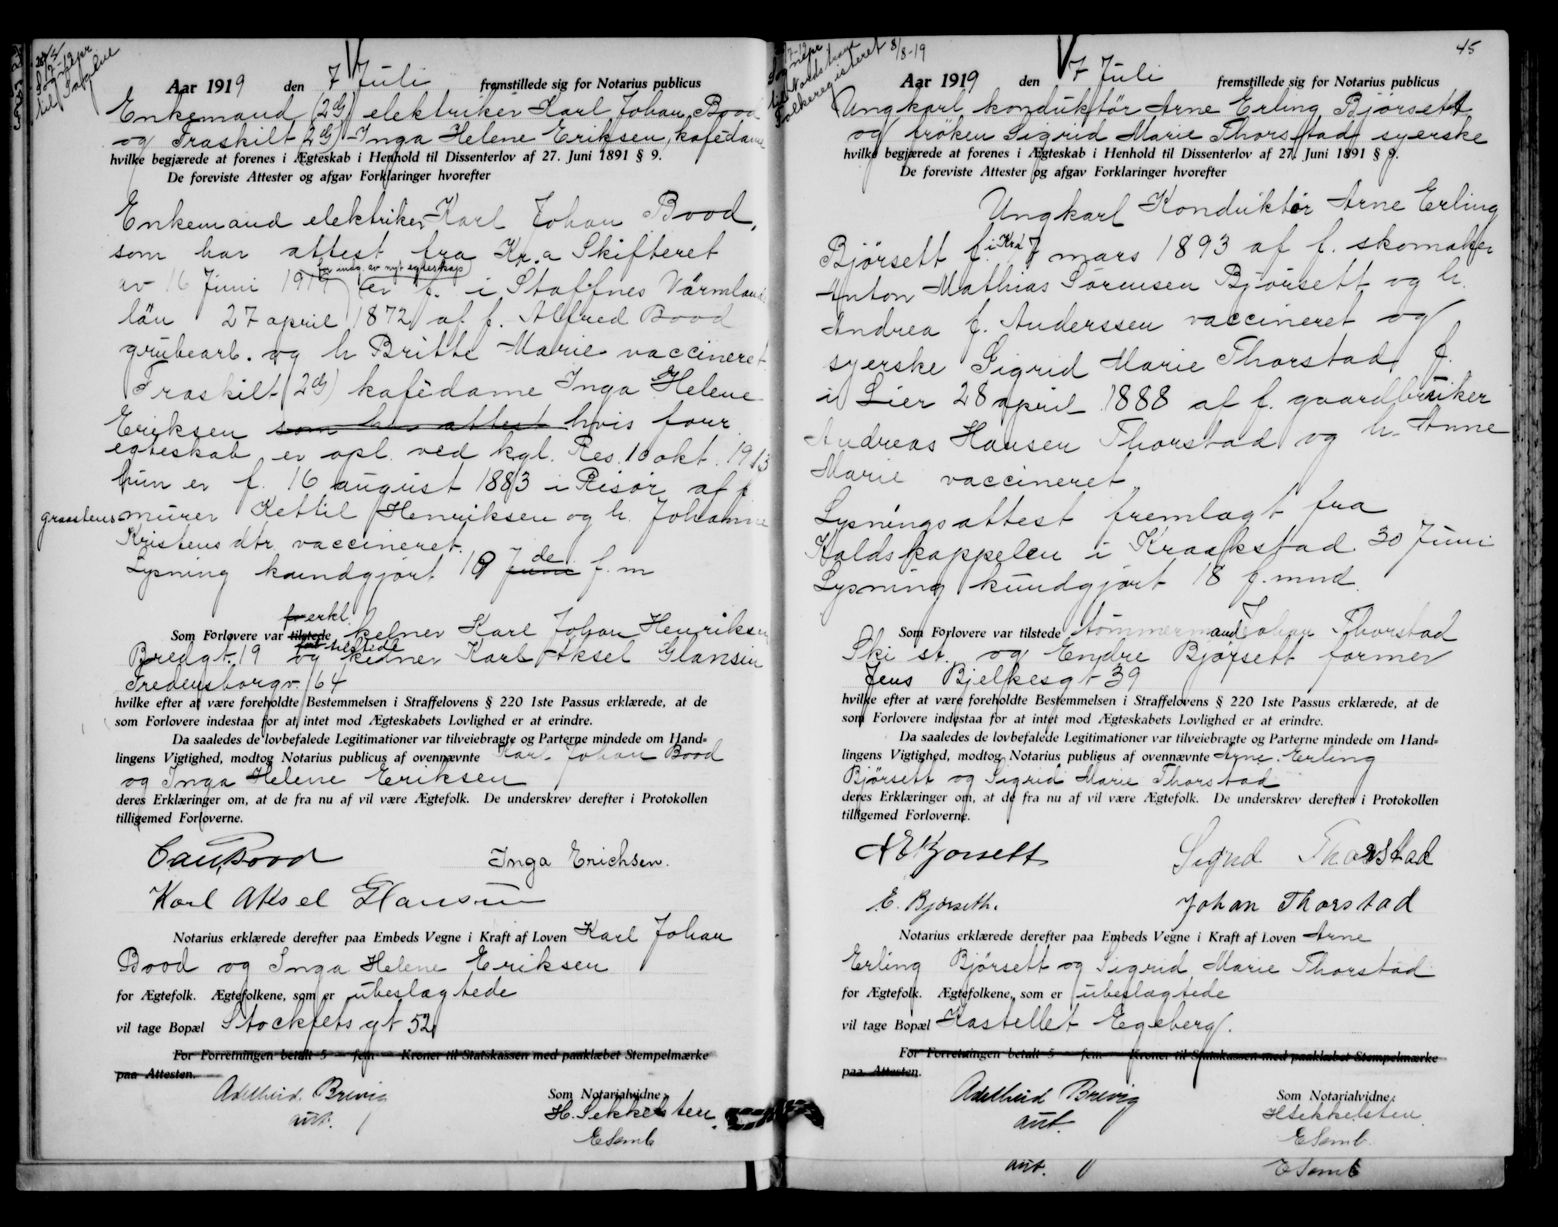 Aar 1919 den 7 Juli fremstillede sig for Notarius publicus
Enkemand (2 g) elektriker Karl Johan Bood
og Fraskilt (2 g) Inga Helene Eriksen, kafédame
hvilke begjærede at forenes i Ægteskab i Henhold til Dissenterlov af 27. Juni 1891 § 9.
De foreviste Attester og afgav Forklaringer hvorefter
Enkemand elektriker Karl Johan Bood,
som har attest fra Kr.a Skifteret
for indg. av nyt egteskap
av 16 Juni 1919 er f. i Staffnes Värmlands
län 27 april 1872 af f. Alfred Bood
grubearb. og h Britte Marie vaccineret
Fraskilt (2 g) kafédame Inga Helene
Eriksen som har attest hvis forr.
egteskab er opl. ved kgl. Res. 10 okt. 1913
hun er f. 16 august 1883 i Risör af f.
graastensmurer Kettil Henriksen og h. Johanne
Kristens dtr. vaccineret.
Lysning kundgjort 19 Juni f.m
de
forerkl.
Som Forlovere var tilstede kelner Karl Johan Henriksen
Bredgt. 19 og kelner Karl Aksel Glansin
tilstede
Fredensborgv. 64
hvilke efter at være foreholdte Bestemmelsen i Straffelovens § 220 1ste Passus erklærede, at de
som Forlovere indestaa for at intet mod Ægteskabets Lovlighed er at erindre.
Da saaledes de lovbefalede Legitimationer var tilveiebragte og Parterne mindede om Hand-
lingens Vigtighed, modtog Notarius publicus af ovennævnte Karl Johan Bood
og Inga Helene Eriksen
deres Erklæringer om, at de fra nu af vil være Ægtefolk. De underskrev derefter i Protokollen
tilligemed Forloverne.
Carl Bood Inga Erichsen.
Karl Aksel Glansin
Notarius erklærede derefter paa Embeds Vegne i Kraft af Loven Karl Johan
Bood og Inga Helene Eriksen
for Ægtefolk. Ægtefolkene, som er ubeslægtede
vil tage Bopæl Stockflets gt 52
For Forretningen betalt 5 — fem — Kroner til Statskassen med paaklæbet Stempelmærke
paa Attesten.
Adelheid Brevig
aut.
Som Notarialvidne:
H. Sekkelsten
E Semb
45
8/8-19
Folkeregisteret
Aar 1919 den 7 Juli fremstillede sig for Notarius publicus
Ungkarl konduktör Arne Erling Bjørsett
og fröken Sigrid Marie Thorstad syerske
hvilke begjærede at forenes i Ægteskab i Henhold til Dissenterlov af 27. Juni 1891 § 9.
De foreviste Attester og afgav Forklaringer hvorefter
Ungkarl Konduktör Arne Erling
Bjørsett f. i Kra 7 mars 1893 af f. skomaker
Anton Mathias Sörensen Bjørsett og h.
Andrea f. Anderssen vaccineret og
syerske Sigrid Marie Thorstad f.
i Lier 28 april 1888 af f. gaardbruker
Andreas Hansen Thorstad og h. Anne
Marie vaccineret
Lysningsattest fremlagt fra
Holdskappelen i Kraakstad 30 Juni
Lysning kundgjort 18 f. mnd.
Som Forlovere var tilstede tömmermand Johan Thorstad
Ski st. og Endre Bjørsett former
Jens Bjelkesgt 39
hvilke efter at være foreholdte Bestemmelsen i Straffelovens § 220 1ste Passus erklærede, at de
som Forlovere indestaa for at intet mod Ægteskabets Lovlighed er at erindre.
Da saaledes de lovbefalede Legitimationer var tilveiebragte og Parterne mindede om Hand-
lingens Vigtighed, modtog Notarius publicus af ovennævnte Arne Erling
Bjørsett og Sigrid Marie Thorstad
deres Erklæringer om, at de fra nu af vil være Ægtefolk. De underskrev derefter i Protokollen
tilligemed Forloverne.
A E Bjorsett Sigrid Thorstad
E. Bjørseth. Johan Thorstad
Notarius erklærede derefter paa Embeds Vegne i Kraft af Loven Arne
Erling Bjørsett og Sigrid Marie Thorstad
for Ægtefolk. Ægtefolkene, som er ubeslægtede
vil tage Bopæl Kastellet Egeberg.
For Forretningen betalt 5 — fem — Kroner til Statskassen med paaklæbet Stempelmærke
paa Attesten.
Adelheid Brevig
aut.
Som Notarialvidne:
H Sekkelsten
E Semb.
aut. E Semb